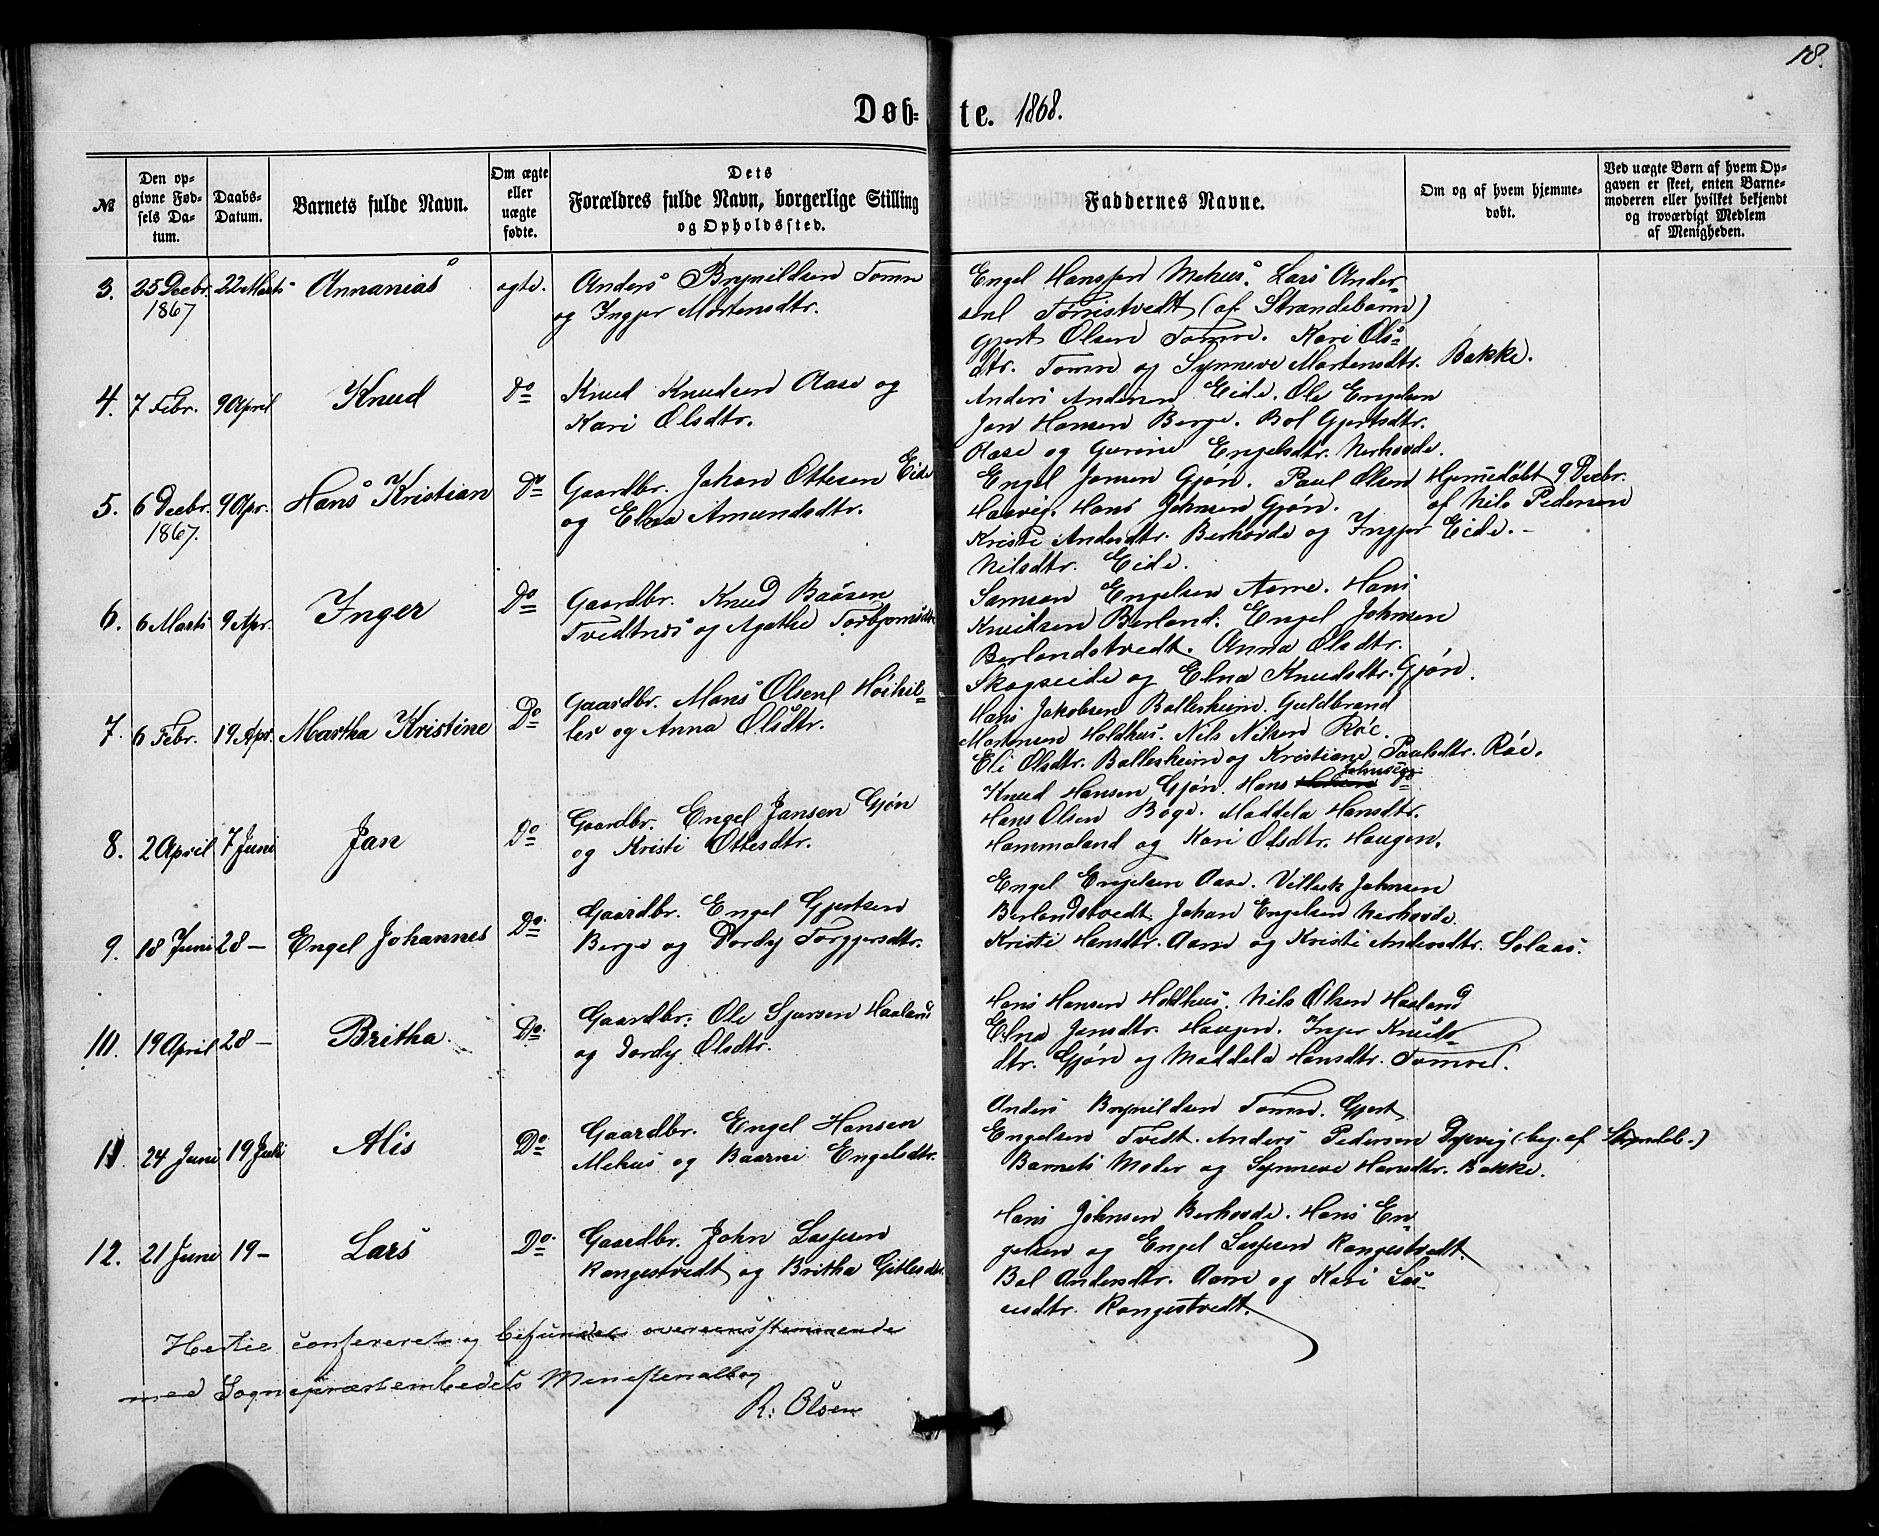 18.
Døb-te. 1868.
№
Den op-
givne Fød-
sels Da-
tum.
Daabs-
Datum.
Barnets fulde Navn.
Om ægte
eller
uægte
fødte.
Dets
Forældres fulde Navn, borgerlige Stilling
og Opholdssted.
Faddernes Navne.
Om og af hvem hjemme-
døbt.
Ved uægte Børn af hvem Op-
gaven er skeet, enten Barne-
moderen eller hvilket bekjendt
og troværdigt Medlem
af Menigheden.
3. 25 Decbr. 22 Marts Annanias ægte. Anders Brynildsen Tomre
1867 og Ingjer Mortensdtr.
Engel Hansen Mehus. Lars Ander-
sen Torristvedt (af Strandebarm)
Gjert Olsen Tomre. Kari Ols-
dtr. Tomre og Synneve Mortensdtr. Bakke.
4. 7 Febr. 9 April Knud Do Knud Knudsen Aase og
Kari Olsdtr.
Anders Andersen Eide. Ole Engelsen
Jon Hansen Berge. Bol Gjertsdtr.
Aase og Gurine Engelsdtr. Nerhovde.
5. 6 Decbr. 9 Apr. Hans Kristian Do Gaardbr. Johan Ottesen Eide
1867. og Elna Amundsdtr.
Engel Jansen Gjøn. Paul Olsen
Haavig. Hans Johnsen Gjøn.
Kristi Andersdtr. Berhovde og Ingjer
Nilsdtr. Eide.
Hjemmedøbt 9 Decbr.
af Nils Pedersen
Eide. -
6. 6 Marts 9 Apr. Inger Do Gaardbr. Knud Baardsen
Tvedtnes og Agathe Torbjørnsdtr.
Samson Engelsen Aarre. Hans
Knudsen Berland. Engel Johnsen
Berlandstvedt. Anna Olsdtr.
Skogseide og Elna Knudsdtr. Gjøn.
7. 6 Febr. 19 Apr. Martha Kristine Do Gaardbr. Mons Olsen Høihil-
ler og Anna Olsdtr.
Hans Jakobsen Ballesheim. Guldbrand
Mortensen Holdhus. Nils Nilsen Røe.
Eli Olsdtr. Ballesheim og Kristiane Paulsdtr. Røe.
8. 2 April 7 Juni Jan Do Gaardbr. Engel Jansen Gjøn
og Kristi Ottesdtr.
Knud Hansen Gjøn. Hans Johnsen Do
Hans Olsen Boge. Maddela Hansdtr.
Hammaland og Kari Olsdtr. Haugen.
9. 18 Juni 28 - Engel Johannes Do Gaardbr. Engel Gjertsen
Berge og Dordy Torgjersdtr.
Engel Engelsen Aase. Villuck Johnsen
Berlandstvedt. Johan Engelsen Nerhovde.
Kristi Hansdtr. Aarre og Kristi Andersdtr. Solaas.
10. 19 April 28 - Britha Do Gaardbr. Ole Sjursen Haaland
og Dordy Olsdtr.
Hans Hansen Holdhus. Nils Olsen Haaland
Elna Jonsdtr. Haugen. Inger Knuds-
dtr. Gjøn og Maddela Hansdtr. Tomre.
11. 24 Juni 19 Juli Alis Do Gaardbr. Engel Hansen
Mehus og Baarni Engelsdtr.
Anders Brynildsen Tomre. Gjert
Engelsen Tvedt. Anders Pedersen Dysvig (beg. af Strandb.)
Barnets Moder og Synneve Hansdtr. Bakke.
12. 21 Juni 19 - Lars Do Gaardbr. John Lassesen
Rangestvedt og Britha Gitlesdtr.
Hans Johnsen Berhovde. Hans En-
gelsen og Engel Lassesen Rangestvedt.
Bol Andersdtr. Aarre og Kari Las-
sesdtr. Rangestvedt.
Hertil confereret og befundet overeensstemmende
med Sognepræstembedets Ministerialbog
R: Olsen